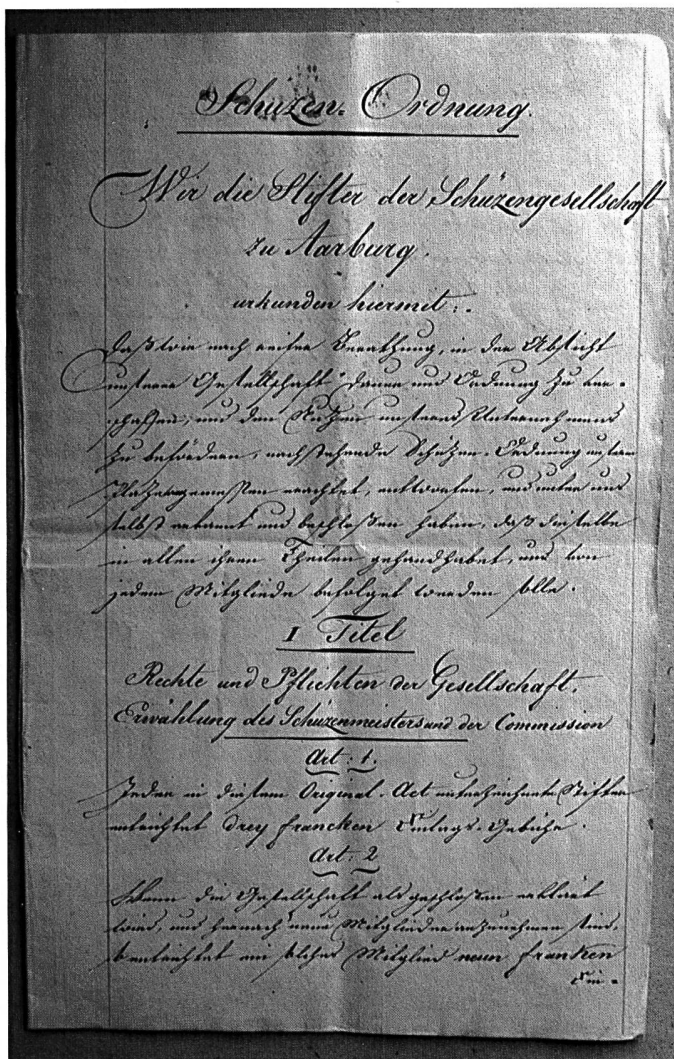 Schüzen-Ordnung.
Wir die Stifter der Schüzengesellschaft
zu Aarburg,
urkunden hiermit:
Daß wir nach reifer Berathung, in der Absicht
unserer Gesellschaft Dauer und Ordnung zu ver-
schaffen, und den Nutzen unseres Unternehmens
zu befördern, nachstehende Schüzen-Ordnung
erachtet, entworfen, und unter uns
selbst erkannt und beschloßen haben, daß dieselbe
in allen ihren Theilen gehandhabet, und von
jedem Mitgliede befolget werden solle.
I Titel
Rechte und Pflichten der Gesellschaft.
Erwählung des Schüzenmeisters und der Commission
Art: 1.
Jeder in diesem Original-Act unterzeichnete Stifter
entrichtet drey francken Einlags-Gebühr.
Art: 2
Wenn die Gesellschaft als geschloßen erklärt
wird, und hernach neue Mitglieder anzunehmen sind,
so entrichtet ein solches Mitglied neun franken
Ein-